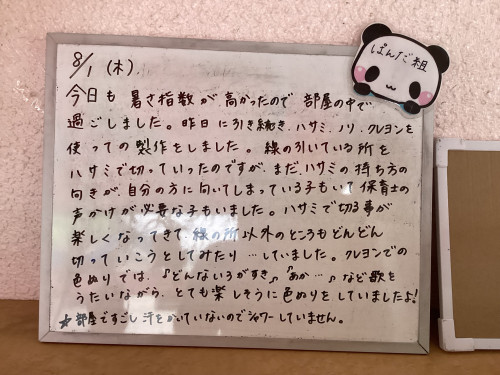 ぱんだ組
8/1 (木)
今日も 暑さ指数が 高かったので 部屋の中で
過ごしました。昨日に引き続き、ハサミ、ノリ、クレヨンを
使っての製作をしました。線の引いている所を
ハサミで切っていったのですが、まだ、ハサミの持ち方の
向きが、自分の方に向いてしまっている子もいて保育士の
声かけが必要な子もいました。ハサミで切る事が
楽しくなってきて、線の所以外のところもどんどん
切っていこうとしてみたり…していました。クレヨンでの
色ぬりでは、『どんないろがすき』『あか…』など歌を
うたいながら、とても楽しそうに色ぬりをしていましたよ!
☆部屋ですごし汗をかいていないのでシャワーしていません。